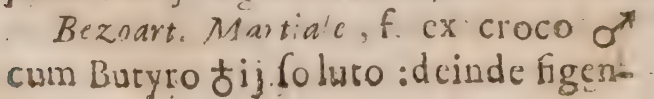 Bezoart. Martiale, f. ex croco ♂
cum Butyro ♁ij ſoluto : deinde figen-